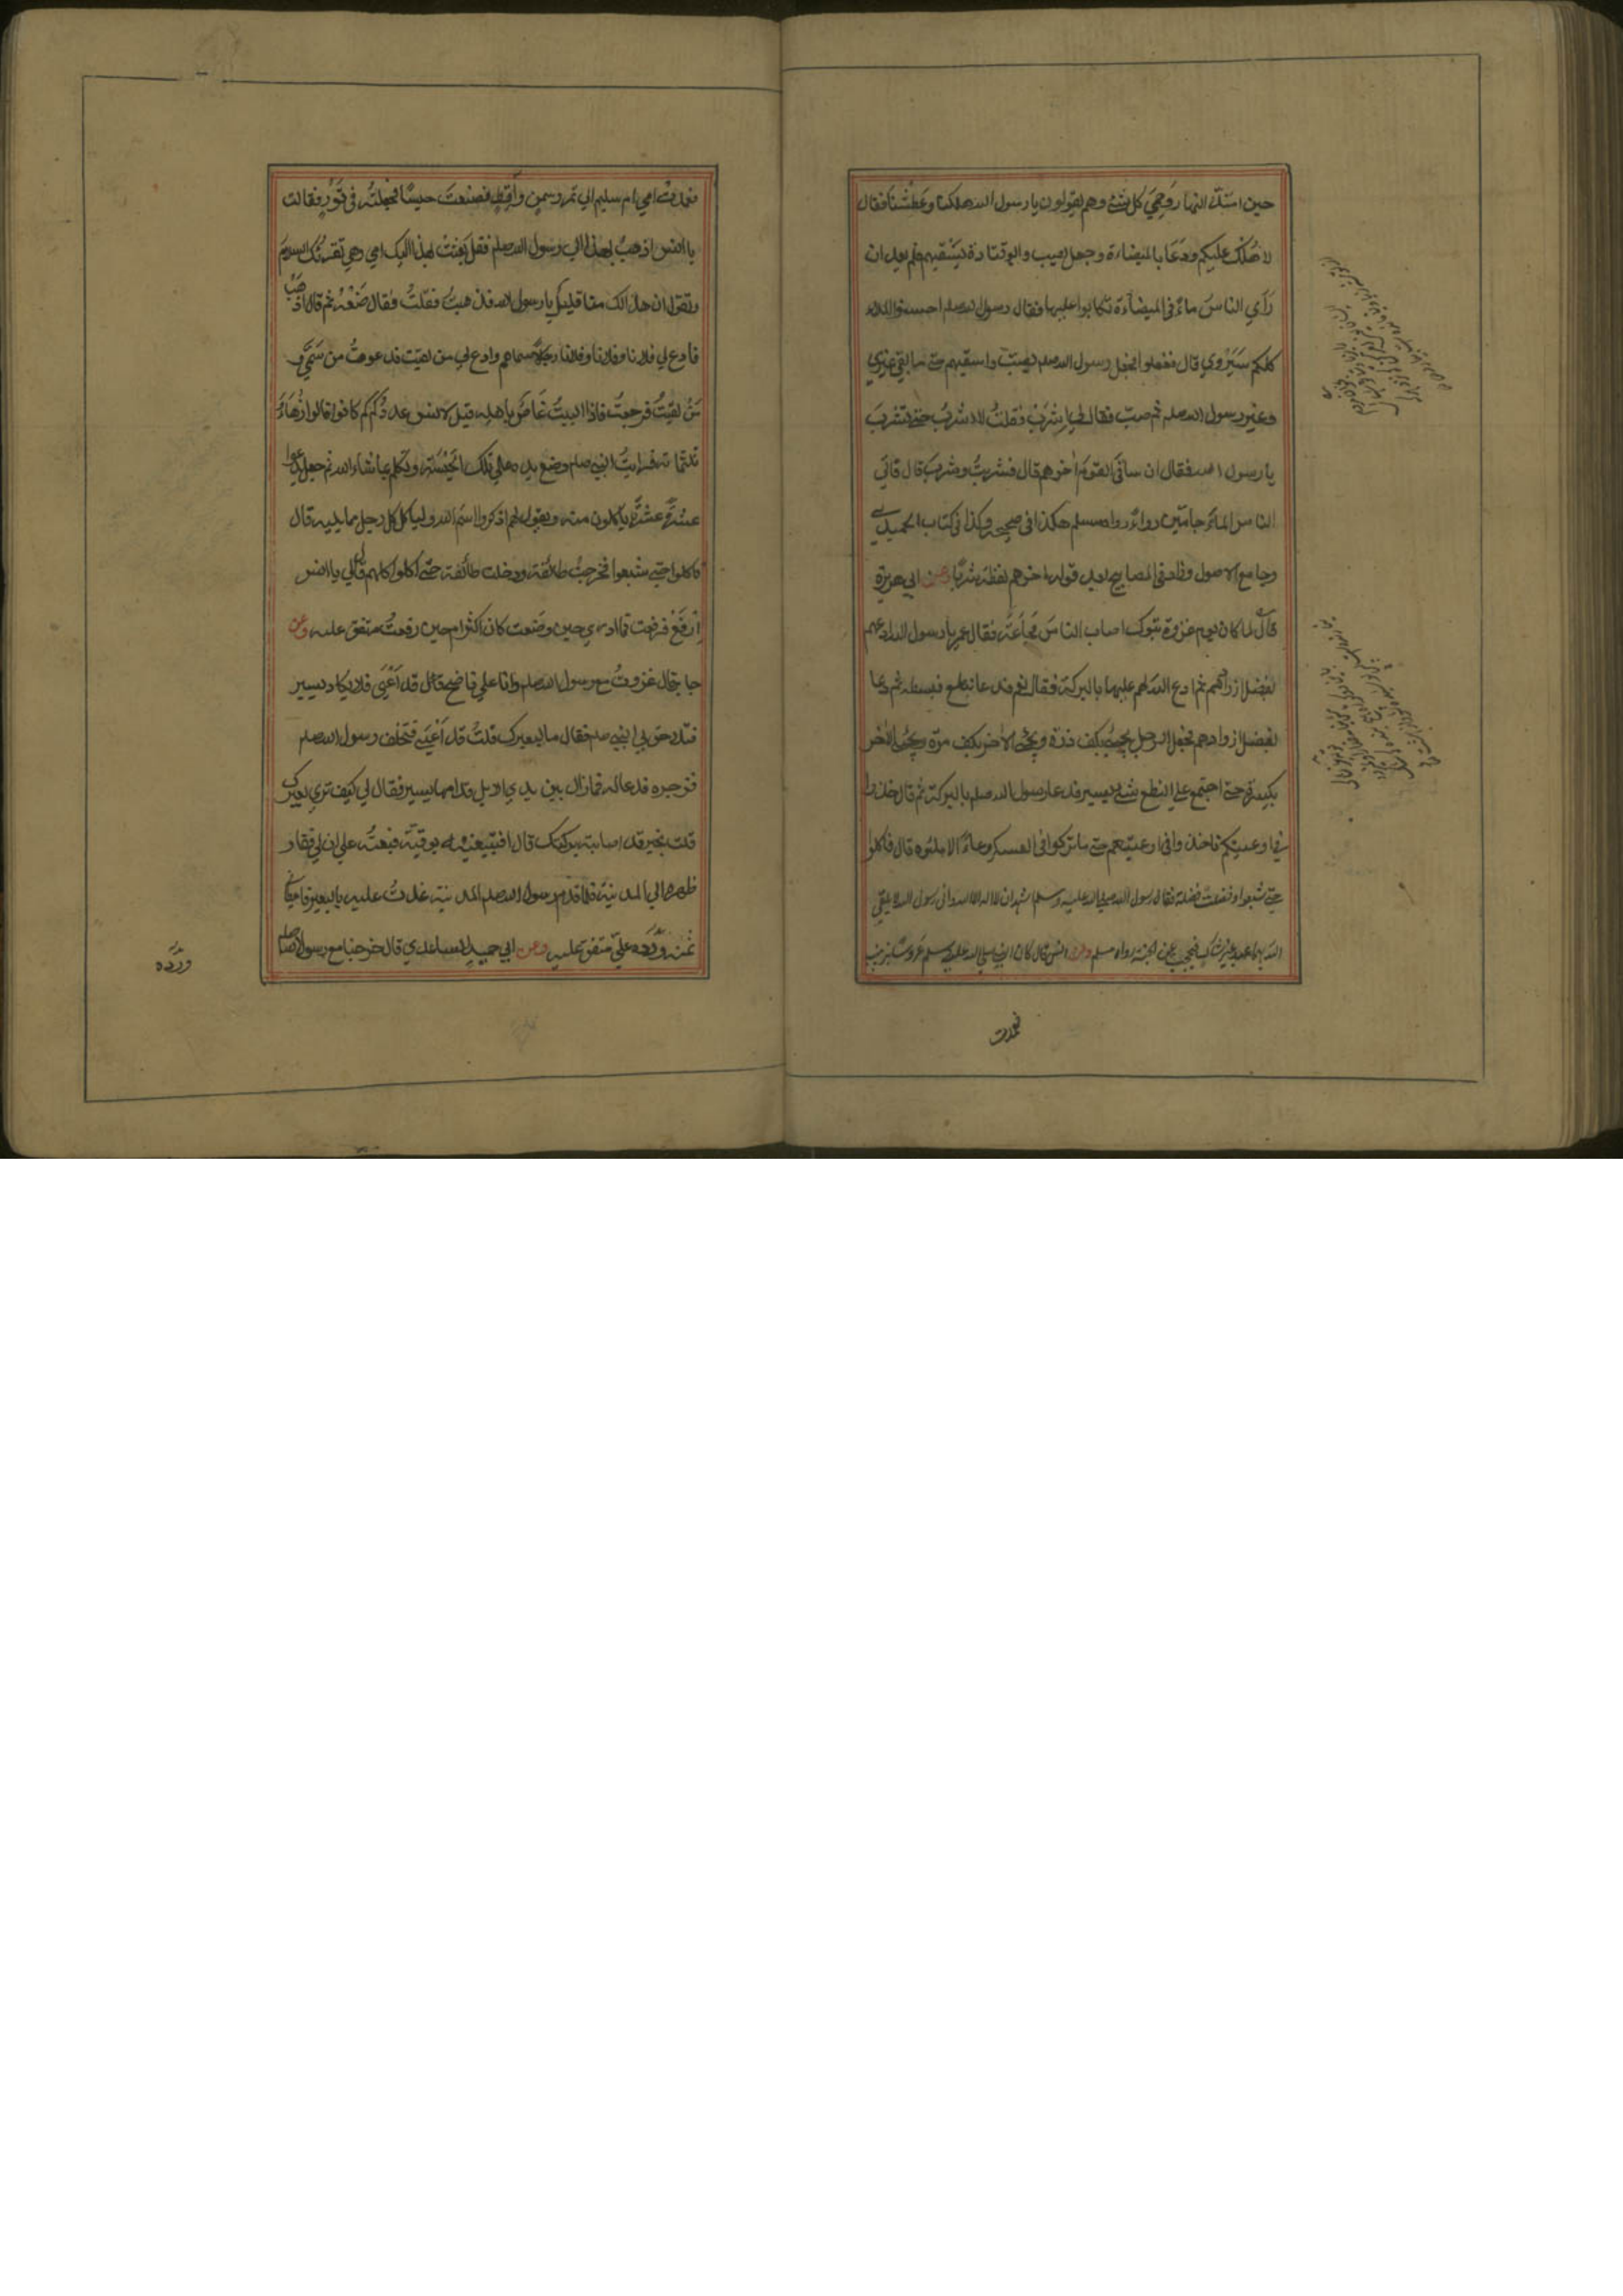 حين امتدّ النهار وحَمِيَ كل شئ وهم يقولون يا رسول الله هلكنا وعَطِشْنَا فقال
لا هُلْكَ عليكم ودَعَا بالميضاءة وجعل يصب وابو قتادة يَسْقيهم فلم يعد ان
رَأَي الناسُ ماءً في الميضآءة تكابوا عليها فقال رسول الله صلعم احسنوا الملاء
كلكم سَيَرْوي قال ففعلوا فجعل رسول الله صلعم يصبّ واسقيهم حتي ما بقي غيري
وغير رسول الله صلعم ثم صبّ فقال لي اِشْرَبْ فقلتُ لا اشربُ حتي تشربَ
يا رسول الله فقال ان ساقيَ القوم اٰخرهم قال فشربتُ وشربَ قال فاتي
الناسُ الماءَ جامّين رِواءً رواه مسلم هكذا في صحيحه وكذا في كتاب الحميدي
وجامع الاصول وزاد في المصابيح بعد قوله اخرهم لفظة شربًا وعن ابي هريرة
قال لما كان يوم غزوة تبوك اصاب الناسَ مَجاعَةٌ فقال عمر يا رسول الله ادعهم
بفضل ازوادهم ثم ادع الله لهم عليها بالبركة فقال نعم فدعا بنطع فبسطه ثم دعا
بفضل ازوادهم فجعل الرجل يجيئُ بكف ذرة ويجئ الاٰخر بكف مرّة ويجئُ الاٰخر
بكسرة حتي اجتمع علي النطع شئ يسير فدعا رسول الله صلعم بالبركة ثم قال خذوا
في اوعيتكم فاخذوا في اوعيتهم حتي ما تركوا في العسكر وعاءً الا ملئوه قال فاكلوا
حتي شبعوا وفضلت فضلة فقال رسول الله صلي الله عليه وسلم اشهد ان لا اله الا الله واني رسول الله لا يلقي
الله بهما عبد غير شاك فيحجب عن الجنة رواه مسلم وعن انس قال كان النبي صلي الله عليه وسلم عروسًا بزينب
فعمدت
فعمدتْ امي ام سليم الي تمر وسمن واَقِطٍ فصنعتْ حيسًا فجعلتْه في تَوْرٍ فقالت
يا انس اذهبْ بهذا الي رسول الله صلعم فقل بَعَثَتْ بهذا اليك امي وهي تقرئك السلامَ
وتقول ان هذا لك منا قليل يا رسول الله فذهبتُ فقلتُ فقال ضَعْهُ ثم قال اذهَبْ
فادع لي فلانا وفلانا وفلانا رجالاً سماهم وادع لي من لقيت فدعوتُ من سَمَّي و
مَنْ لقيتُ فرجعتُ فاذا البيتُ غَاصٌّ باهله قيل لانس عددُكم كم كانوا قال زُهَاءُ
ثلثمائة فرايتُ النبي صلعم وضع يده علي تلك الحَيْسَة وتكلم بما شاء الله ثم جعل يدعوا
عشرَة عشرَة ياكلون منه ويقول لهم اذكروا اسم الله وليأكل كل رجل مما يليه قال
فاكلوا حتي شبعوا فخرجتْ طائفة ودخلت طائفة حتي اكلوا كلهم قال لي يا انس
اِرْفَعْ فرفعت فما ادري حين وضعت كان اكثر ام حين رفعتُ متفق عليه وعن
جابر قال غزوتُ مع رسول الله صلعم وانا علي ناضح قد اَعْيَي فلا يكاد يسير
فتلاحق بي النبي صلعم فقال ما لبعيرك قلتُ قد اَعْيَي فتخلف رسول الله صلعم
فزجره فدعا له فما زال بين يدي الابل قدامها يسير فقال لي كيف تري بعيرك
قلت بخير قد اصابته بركتك قال افتبيعُنيه بوقيّة فبعتُه علي ان لي فقار
ظهره الي المدينة فلما قدم رسول الله صلعم المدينة غدوتُ عليه بالبعير فاعطاني
ثمنه ورَدَّه عليّ متفق عليه وعن ابي حميد الساعدي قال خرجنا مع رسول الله صلعم
وردّه